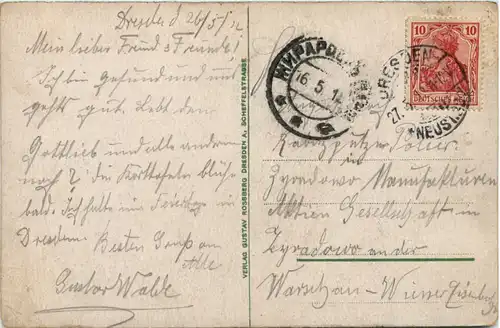 Dresden d 26/5/12
Mein lieber Freund & Freunde!
Ich bin gesund und mir
gehts gut. Lebt den
Gottlieb und alle andern
noch? die Kartoffeln blühen
bald. Ich halte im
Dresden. Besten Gruß an
Alle
Gustav Walde
VERLAG GUSTAV ROSSBERG DRESDEN A. SCHEFFELSTRASSE
ЖИРАРДОВ
16.5.12
DRESDEN
27.
NEUST.
10 10
DEUTSCHES REICH
in
Zyradowo Manufakturen
Aktien Gesellschaft in
Zyradowo an der
Warschau-Wiener Eisenbahn